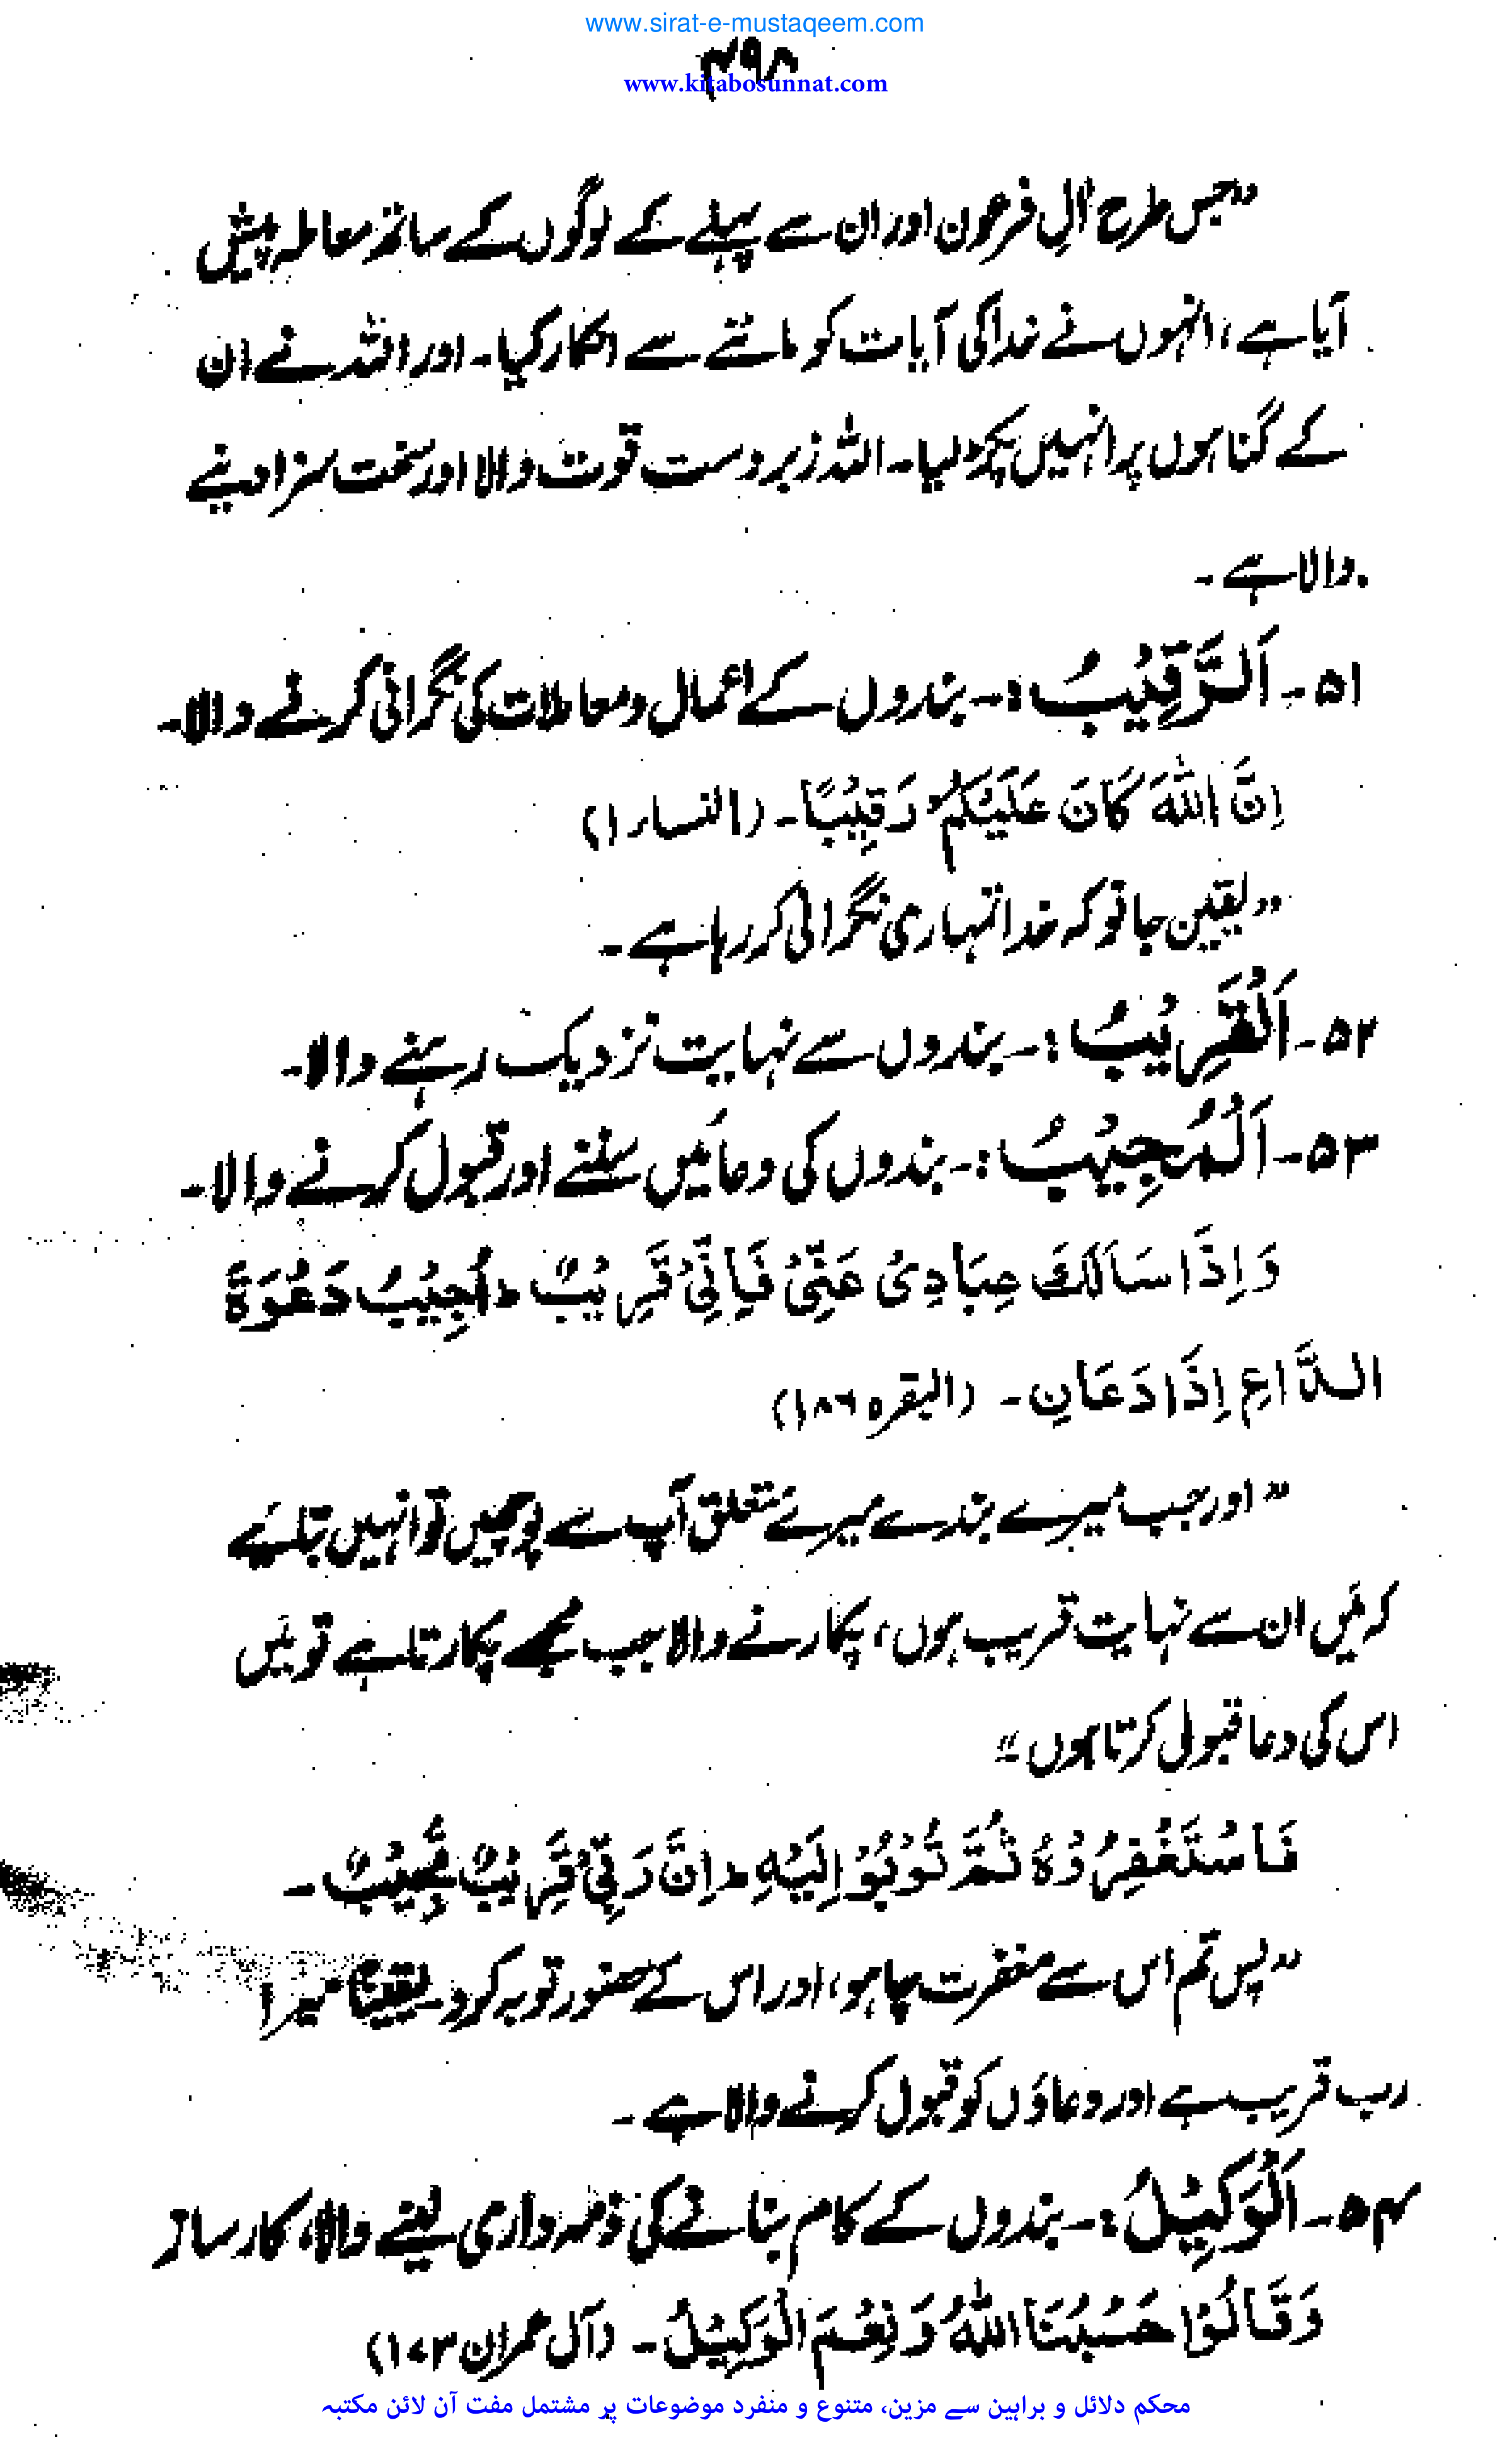 www.sirat-e-mustaqeem.com
۴۹۸
www.kitabosunnat.com
”جس طرح آلِ فرعون اور ان سے پہلے کے لوگوں کے ساتھ معاملہ پیش
آیا ہے، انہوں نے خدا کی آیات کو ماننے سے انکار کیا۔ اور اللہ نے ان
کے گناہوں پر انہیں پکڑ لیا۔ اللہ زبردست قوت والا اور سخت سزا دینے
والا ہے۔
۵۱۔ اَلرَّقِیْبُ :۔ بندوں کے اعمال و معاملات کی نگرانی کرنے والا۔
اِنَّ اللّٰہَ کَانَ عَلَیْکُمْ رَقِیْبًا۔ (النساء ۱)
”یقین جانو کہ خدا تمہاری نگرانی کر رہا ہے۔
۵۲۔ اَلْقَرِیْبُ :۔ بندوں سے نہایت نزدیک رہنے والا۔
۵۳۔ اَلْمُجِیْبُ :۔ بندوں کی دعائیں سننے اور قبول کرنے والا۔
وَ اِذَا سَاَلَکَ عِبَادِیْ عَنِّیْ فَاِنِّیْ قَرِیْبٌ ط اُجِیْبُ دَعْوَۃَ
الدَّاعِ اِذَا دَعَانِ۔ (البقرہ ۱۸۶)
”اور جب میرے بندے میرے متعلق آپ سے پوچھیں تو انہیں بتائیے
کہ میں ان سے نہایت قریب ہوں، پکارنے والا جب مجھے پکارتا ہے تو میں
اس کی دعا قبول کرتا ہوں“
فَاسْتَغْفِرُوْہُ ثُمَّ تُوْبُوْا اِلَیْہِ ط اِنَّ رَبِّیْ قَرِیْبٌ مُّجِیْبٌ۔
”پس تم اس سے مغفرت چاہو، اور اس کے حضور توبہ کرو۔ یقیناً میرا
رب قریب ہے اور دعاؤں کو قبول کرنے والا ہے۔
۵۴۔ اَلْوَکِیْلُ :۔ بندوں کے کام بنانے کی ذمہ داری لینے والا، کارساز
وَقَالُوْا حَسْبُنَا اللّٰہُ وَ نِعْمَ الْوَکِیْلُ۔ (آل عمران ۱۷۳)
محکم دلائل و براہین سے مزین، متنوع و منفرد موضوعات پر مشتمل مفت آن لائن مکتبہ